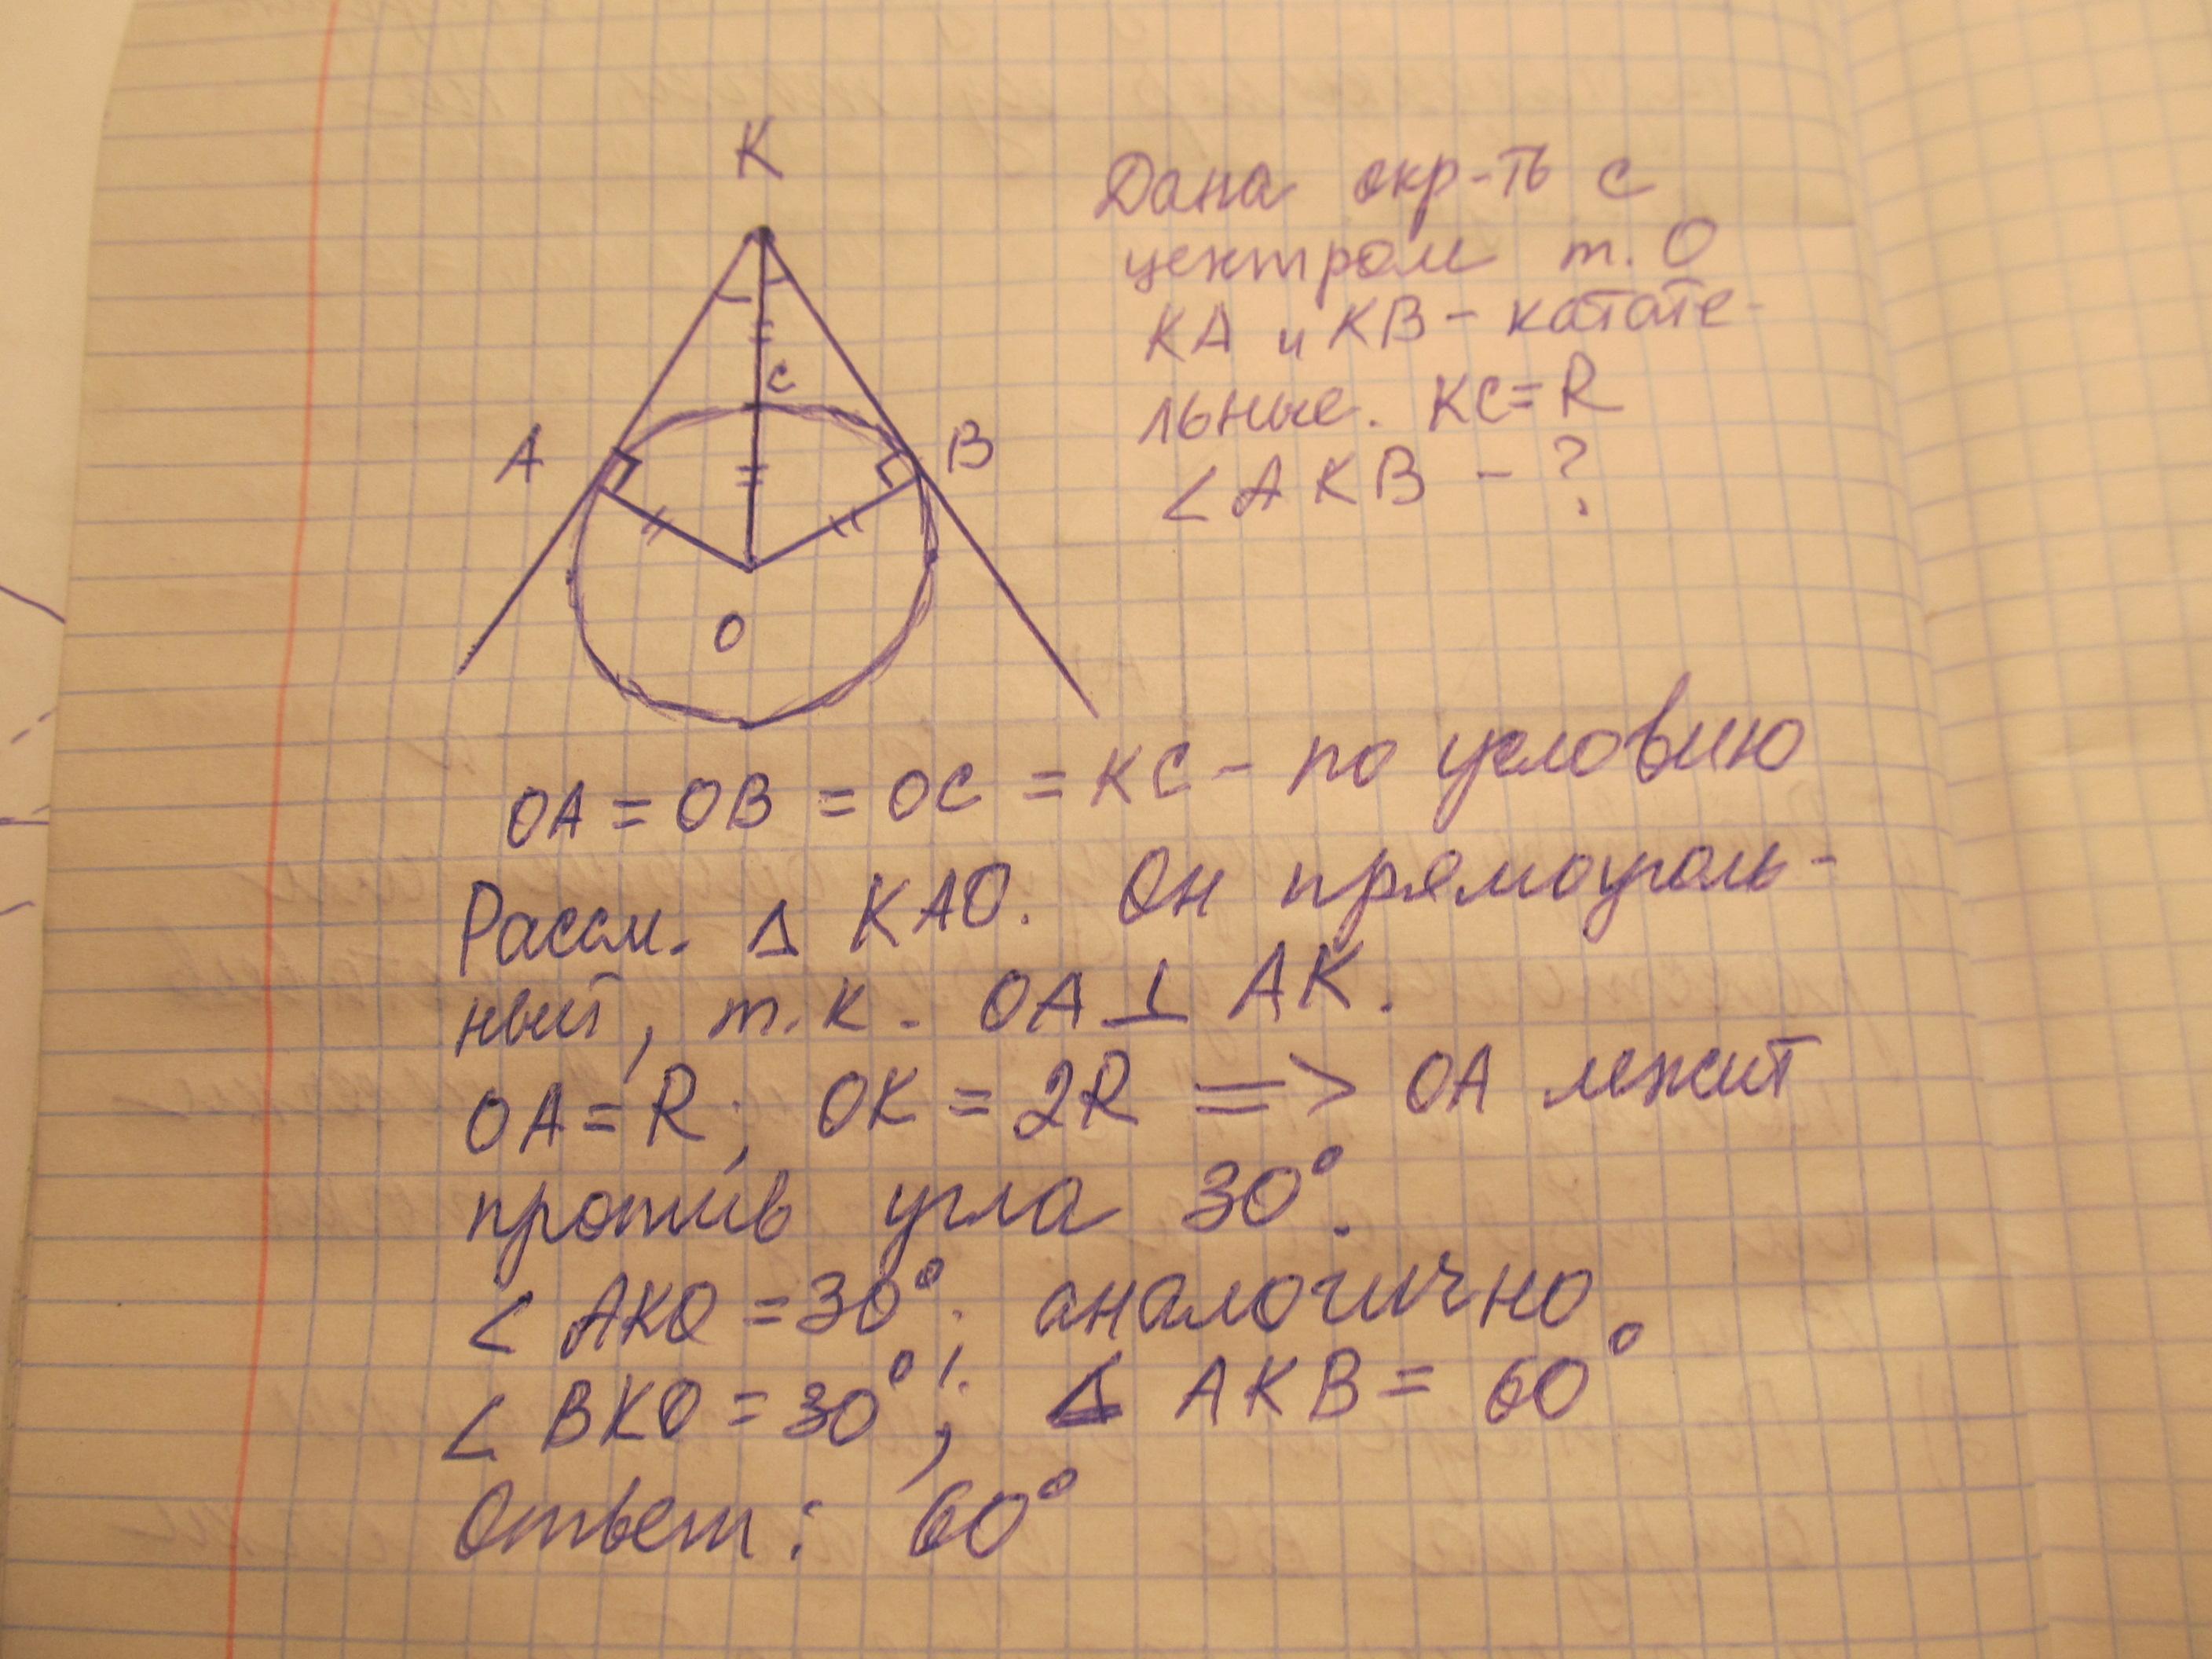 K
Дана окр-ть с
центром т. О
КА и КВ - касате-
льные. КС = R
< АКВ - ?
C
A
B
O
OA = OB = OC = KC - по условию
Рассм. Δ КАО. Он прямоуголь-
ный, т.к. ОА ⊥ АК.
OA = R; OK = 2R => OA лежит
против угла 30°.
< AKO = 30°; аналогично
< BKO = 30°; < AKB = 60°
Ответ: 60°